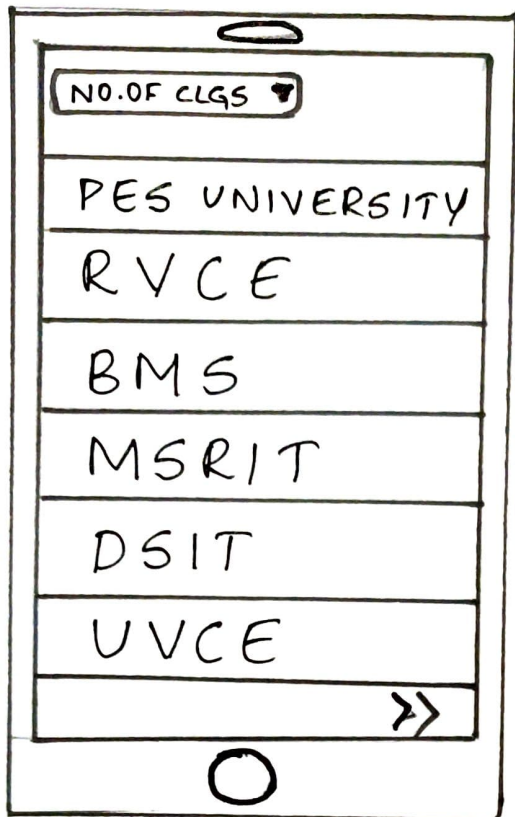 NO.OF CLGS
PES UNIVERSITY
RVCE
BMS
MSRIT
DSIT
UVCE
>>